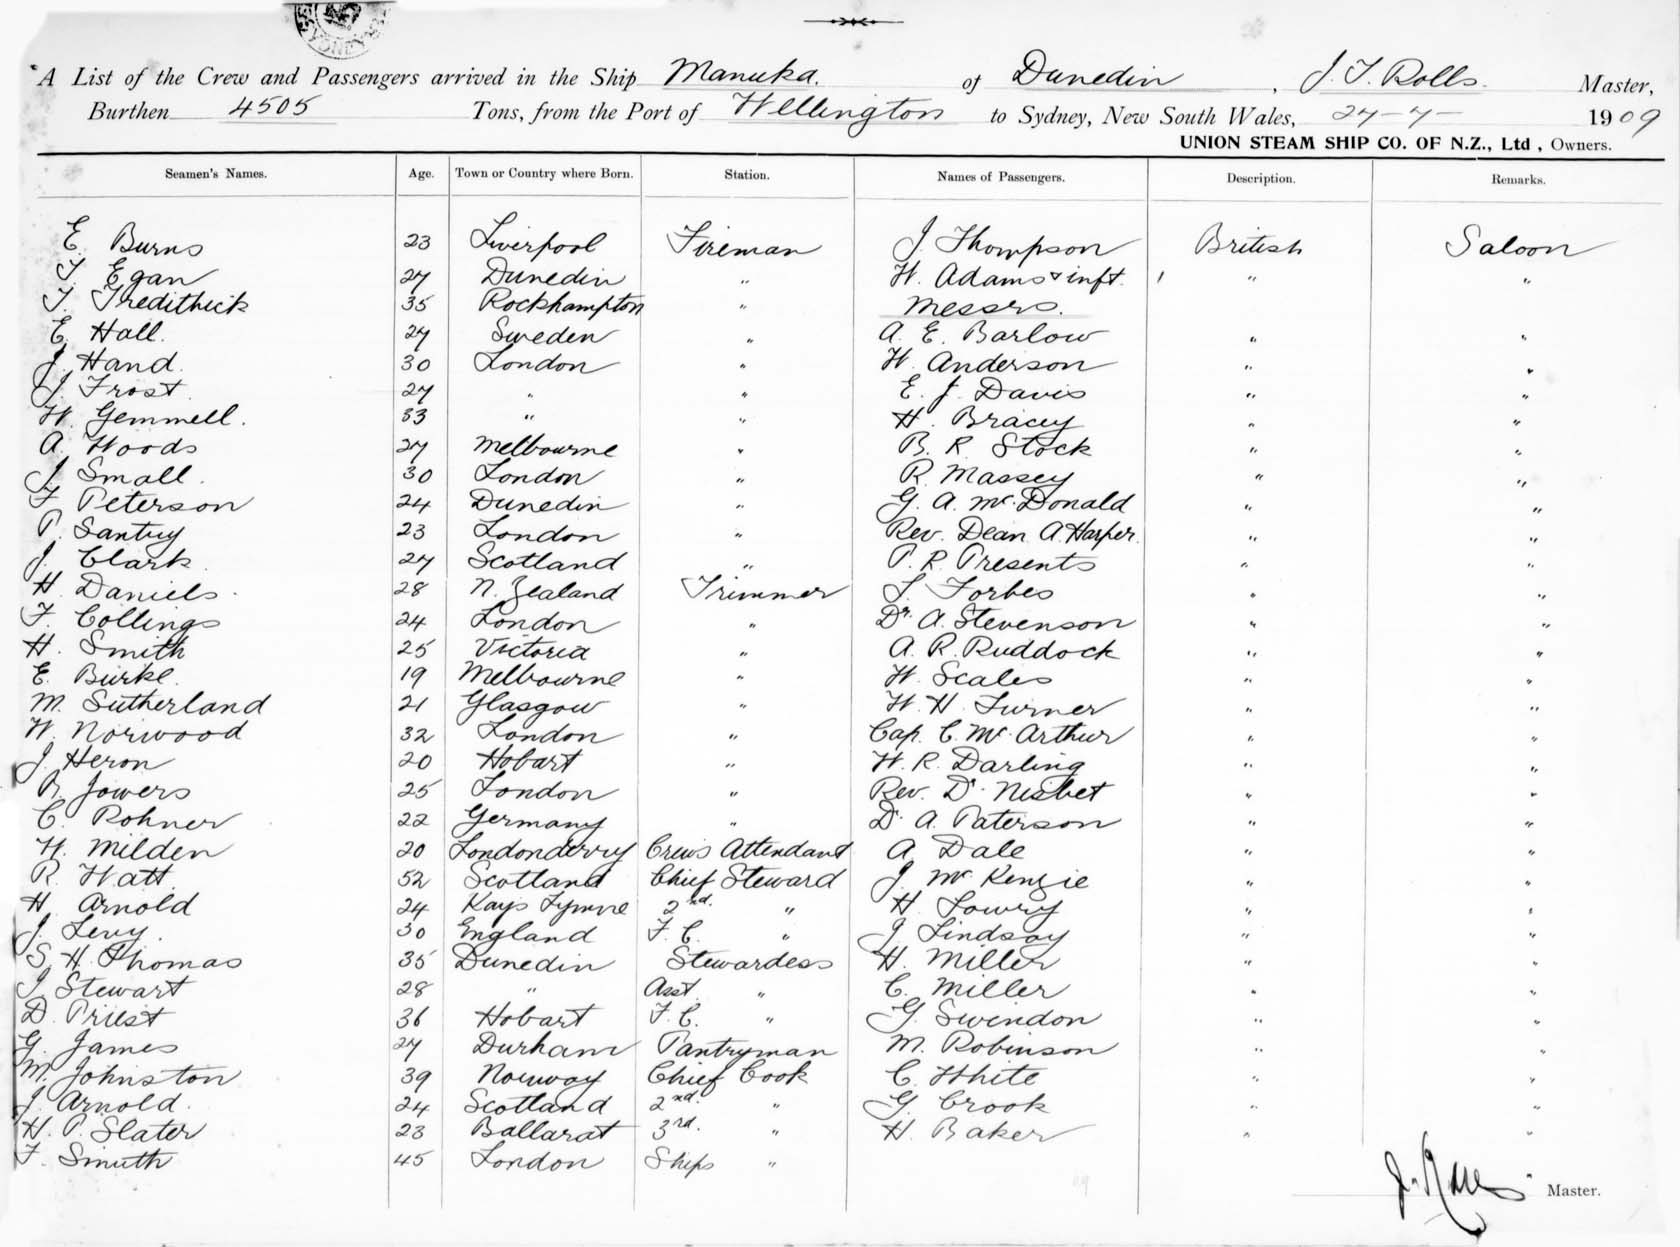 SYDNEY
A List of the Crew and Passengers arrived in the Ship Manuka. of Dunedin, J. T. Rolls. Master,
Burthen 4505 Tons, from the Port of Wellington to Sydney, New South Wales, 27-7- 1909
UNION STEAM SHIP CO. OF N.Z., Ltd, Owners.
Seamen's Names. Age. Town or Country where Born. Station. Names of Passengers. Description. Remarks.
E. Burns 23 Liverpool Fireman J. Thompson British Saloon
T. Egan 27 Dunedin " W. Adams & inft. 1 " "
T. Tredithick 35 Rockhampton " Messrs.
E. Hall. 27 Sweden " A. E. Barlow " "
J. Hand. 30 London " W. Anderson " "
J. Frost. 27 " " E. J. Davis " "
W. Gemmell. 33 " " H. Bracey " "
A. Woods 27 Melbourne " B. R. Stock " "
J. Small. 30 London " R. Massey " "
F. Peterson 24 Dunedin " G. A. McDonald " "
P. Santry 23 London " Rev. Dean A. Harper. " "
J. Clark. 27 Scotland " P. R. Presents " "
H. Daniels. 28 N. Zealand Trimmer L. Forbes " "
F. Collings 24 London " Dr. A. Stevenson " "
H. Smith 25 Victoria " A. R. Ruddock " "
E. Burke. 19 Melbourne " W. Scales " "
M. Sutherland 21 Glasgow " W. H. Turner " "
W. Norwood 32 London " Cap. C. McArthur " "
J. Heron 20 Hobart " W. R. Darling " "
R. Jowers 25 London " Rev. Dr. Nisbet " "
C. Rohner 22 Germany " Dr A. Paterson " "
H. Milden 20 Londonderry Crews Attendant A. Dale " "
R. Watt. 52 Scotland Chief Steward J. McKenzie " "
H. Arnold 24 Kays Tymne 2nd. " H. Lowry " "
J. Levy. 30 England F. C. " J. Lindsay " "
S. H. Thomas 35 Dunedin Stewardess H. Miller " "
J. Stewart 28 " Asst. " C. Miller " "
D. Priest 36 Hobart F. C. " G. Swindon " "
G. James 27 Durham Pantryman M. Robinson " "
M. Johnston 39 Norway Chief Cook C. White " "
J. Arnold. 24 Scotland 2nd. " G. Crook " "
H. P. Slater 23 Ballarat 3rd. " H. Baker " "
F. Smith 45 London Ships " "
J. Rolls Master.